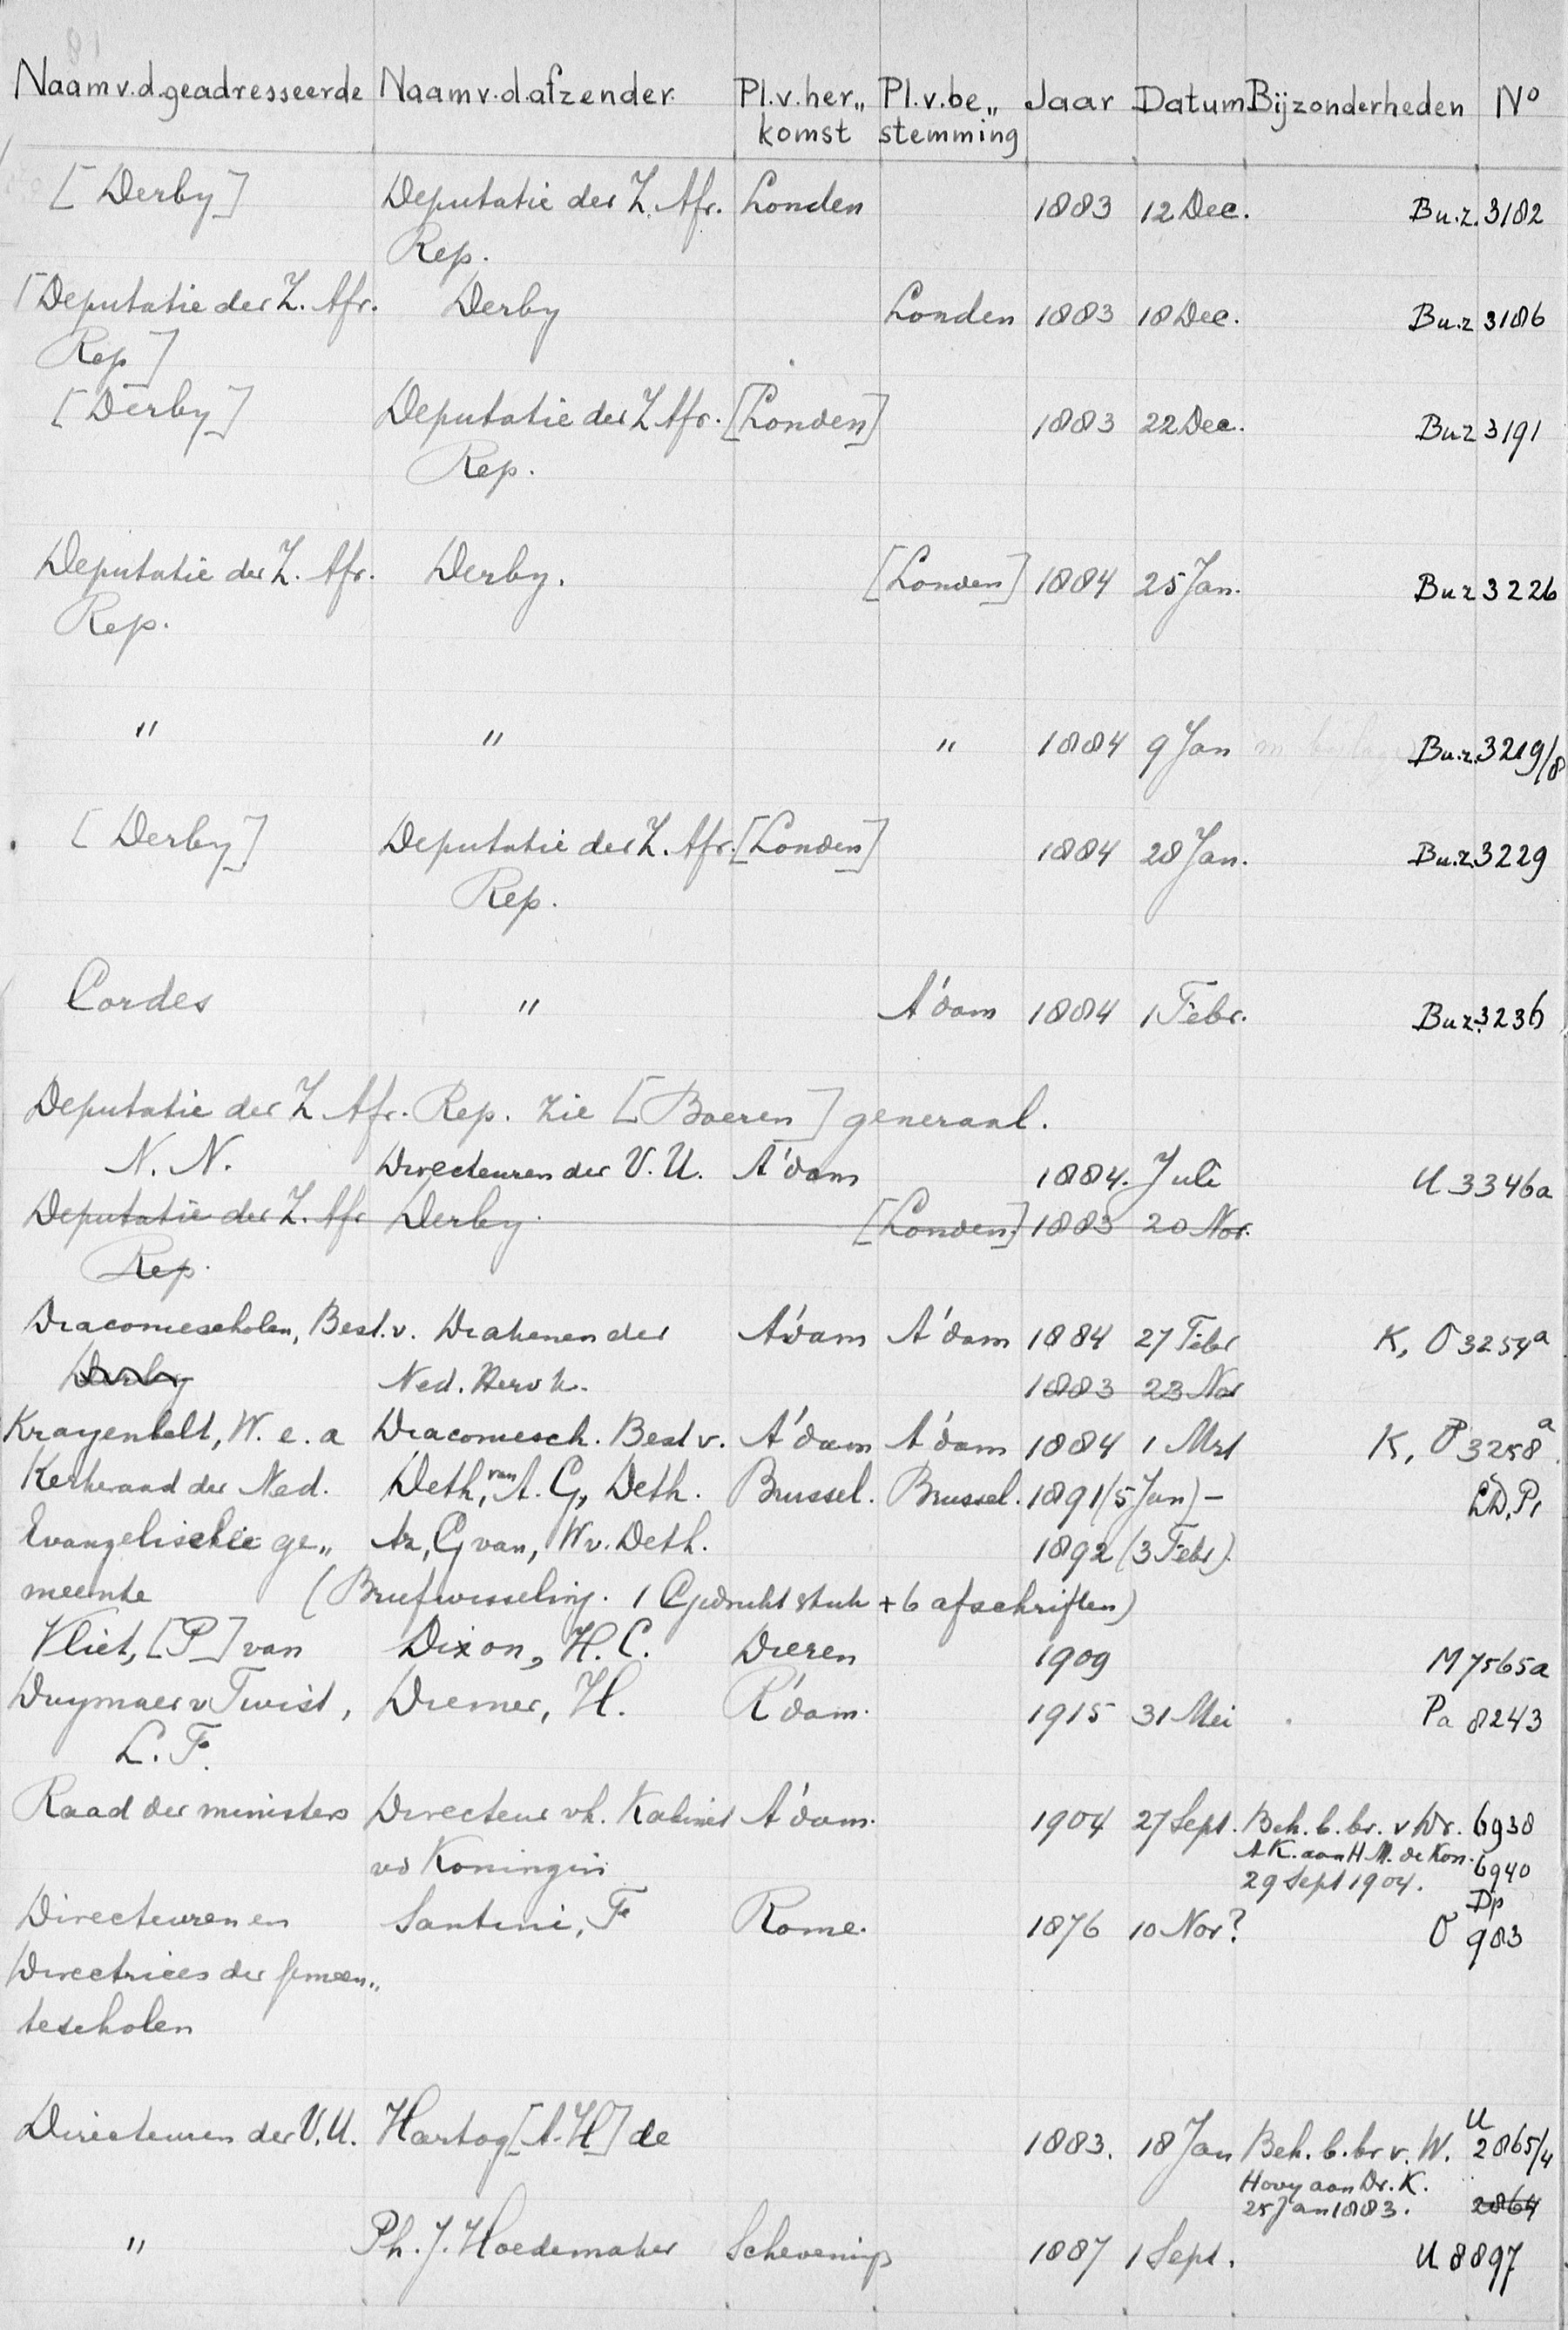 Naam v. d. geadresseerde Naam v. d. afzender. Pl. v. her„ Pl. v. be„ Jaar Datum Bijzonderheden No
komst stemming
[Derby] Deputatie der Z. Afr. Londen 1883 12 Dec. Bu.z. 3182
Rep.
[Deputatie der Z. Afr. Derby Londen 1883 18 Dec. Bu.z 3186
Rep]
[Derby] Deputatie der Z Afr. [Londen] 1883 22 Dec. Buz 3191
Rep.
Deputatie der Z. Afr. Derby. [Londen] 1884 25 Jan. Buz 3226
Rep.
" " " 1884 9 Jan Bu.z. 3219/8
[Derby] Deputatie der Z. Afr. [Londen] 1884 28 Jan. Bu.z. 3229
Rep.
Cordes " A'dam 1884 1 Febr. Buz. 3236
Deputatie der Z Afr. Rep. zie [Boeren] generaal.
N. N. Directeuren der V. U. A'dam 1884. Juli U 3346a
Deputatie der Z. Afr Derby. [Londen] 1883 20 Nov.
Rep.
Diaconiescholen, Best. v. Diakenen der A'dam A'dam 1884 27 Febr K, O 3254a
Derby Ned. Herv k. 1883 23 Nov
Krayenbelt, W. e. a Diaconiesch. Best v. A'dam A'dam 1884 1 Mrt K, O 3258a
Kerkeraad der Ned. Deth, van A. G, Deth. Brussel. Brussel. 1891 (5 Jan) - LD, Pr
Evangelische ge„ Az, G van, W v. Deth. 1892 (3 Febr).
meente (Briefwisseling. 1 Gedrukt stuk + 6 afschriften)
Vliet, [P] van Dixon, H. C. Dieren 1909 M 7565a
Duymaer v Twist, Diemer, H. R'dam. 1915 31 Mei Pa 8243
L. F.
Raad der ministers Directeur vh. Kabinet A'dam. 1904 27 Sept. Beh. b. br. v Dr. 6938
vd Koningin A K. aan H M. de Kon. 6940
29 Sept 1904. Dp
Directeuren en Santini, F Rome. 1876 10 Nov? O 983
Directrices der gemeen„
tescholen
Directeuren der V. U. Hartog [A. H] de 1883. 18 Jan Beh. b. br v. W. U 2865/4
Hovy aan Dr. K.
25 Jan 1883. 2864
" Ph. J. Hoedemaker Schevening 1887 1 Sept. U 8897